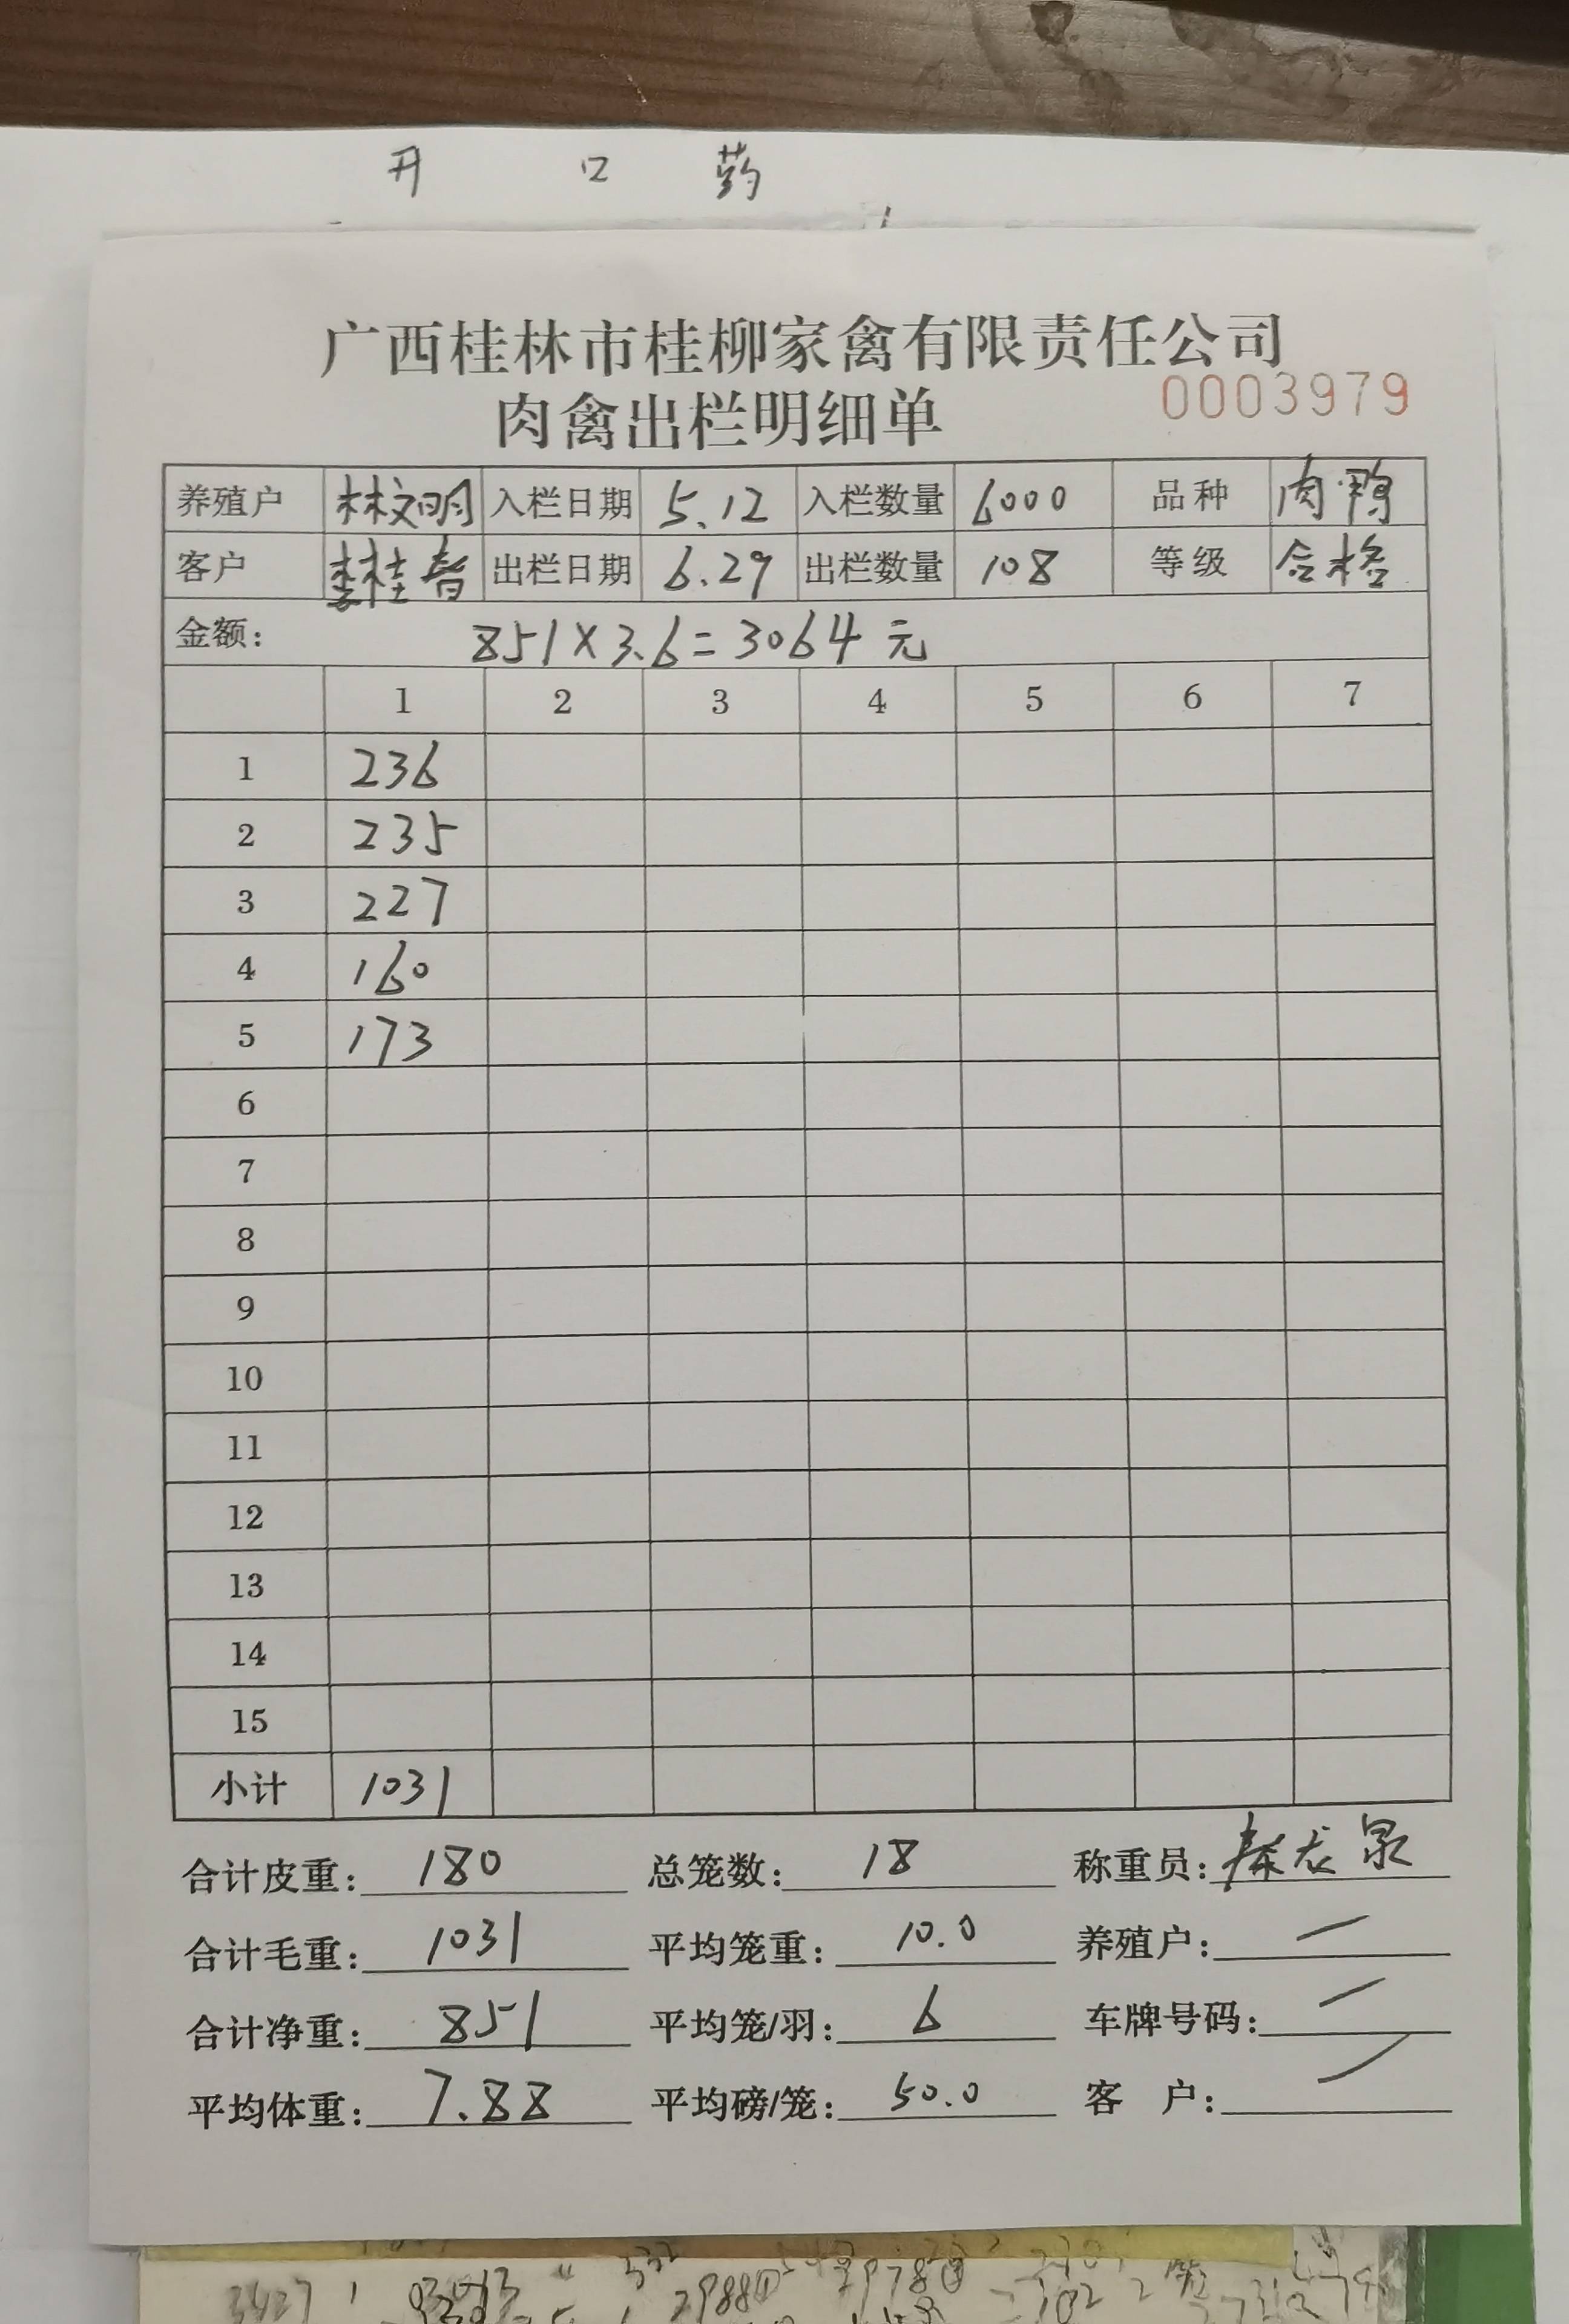 开 口 药
广西桂林市桂柳家禽有限责任公司
肉禽出栏明细单 0003979
养殖户 林文明 入栏日期 5.12 入栏数量 6000 品种 肉鸭
客户 桂春 出栏日期 6.29 出栏数量 108 等级 合格
金额: 851×3.6=3064元
1 2 3 4 5 6 7
1 236
2 235
3 227
4 160
5 173
6
7
8
9
10
11
12
13
14
15
小计 1031
合计皮重: 180 总笼数: 18 称重员: 秦龙泉
合计毛重: 1031 平均笼重: 10.0 养殖户:
合计净重: 851 平均笼/羽: 6 车牌号码:
平均体重: 7.88 平均磅/笼: 50.0 客 户:
3427